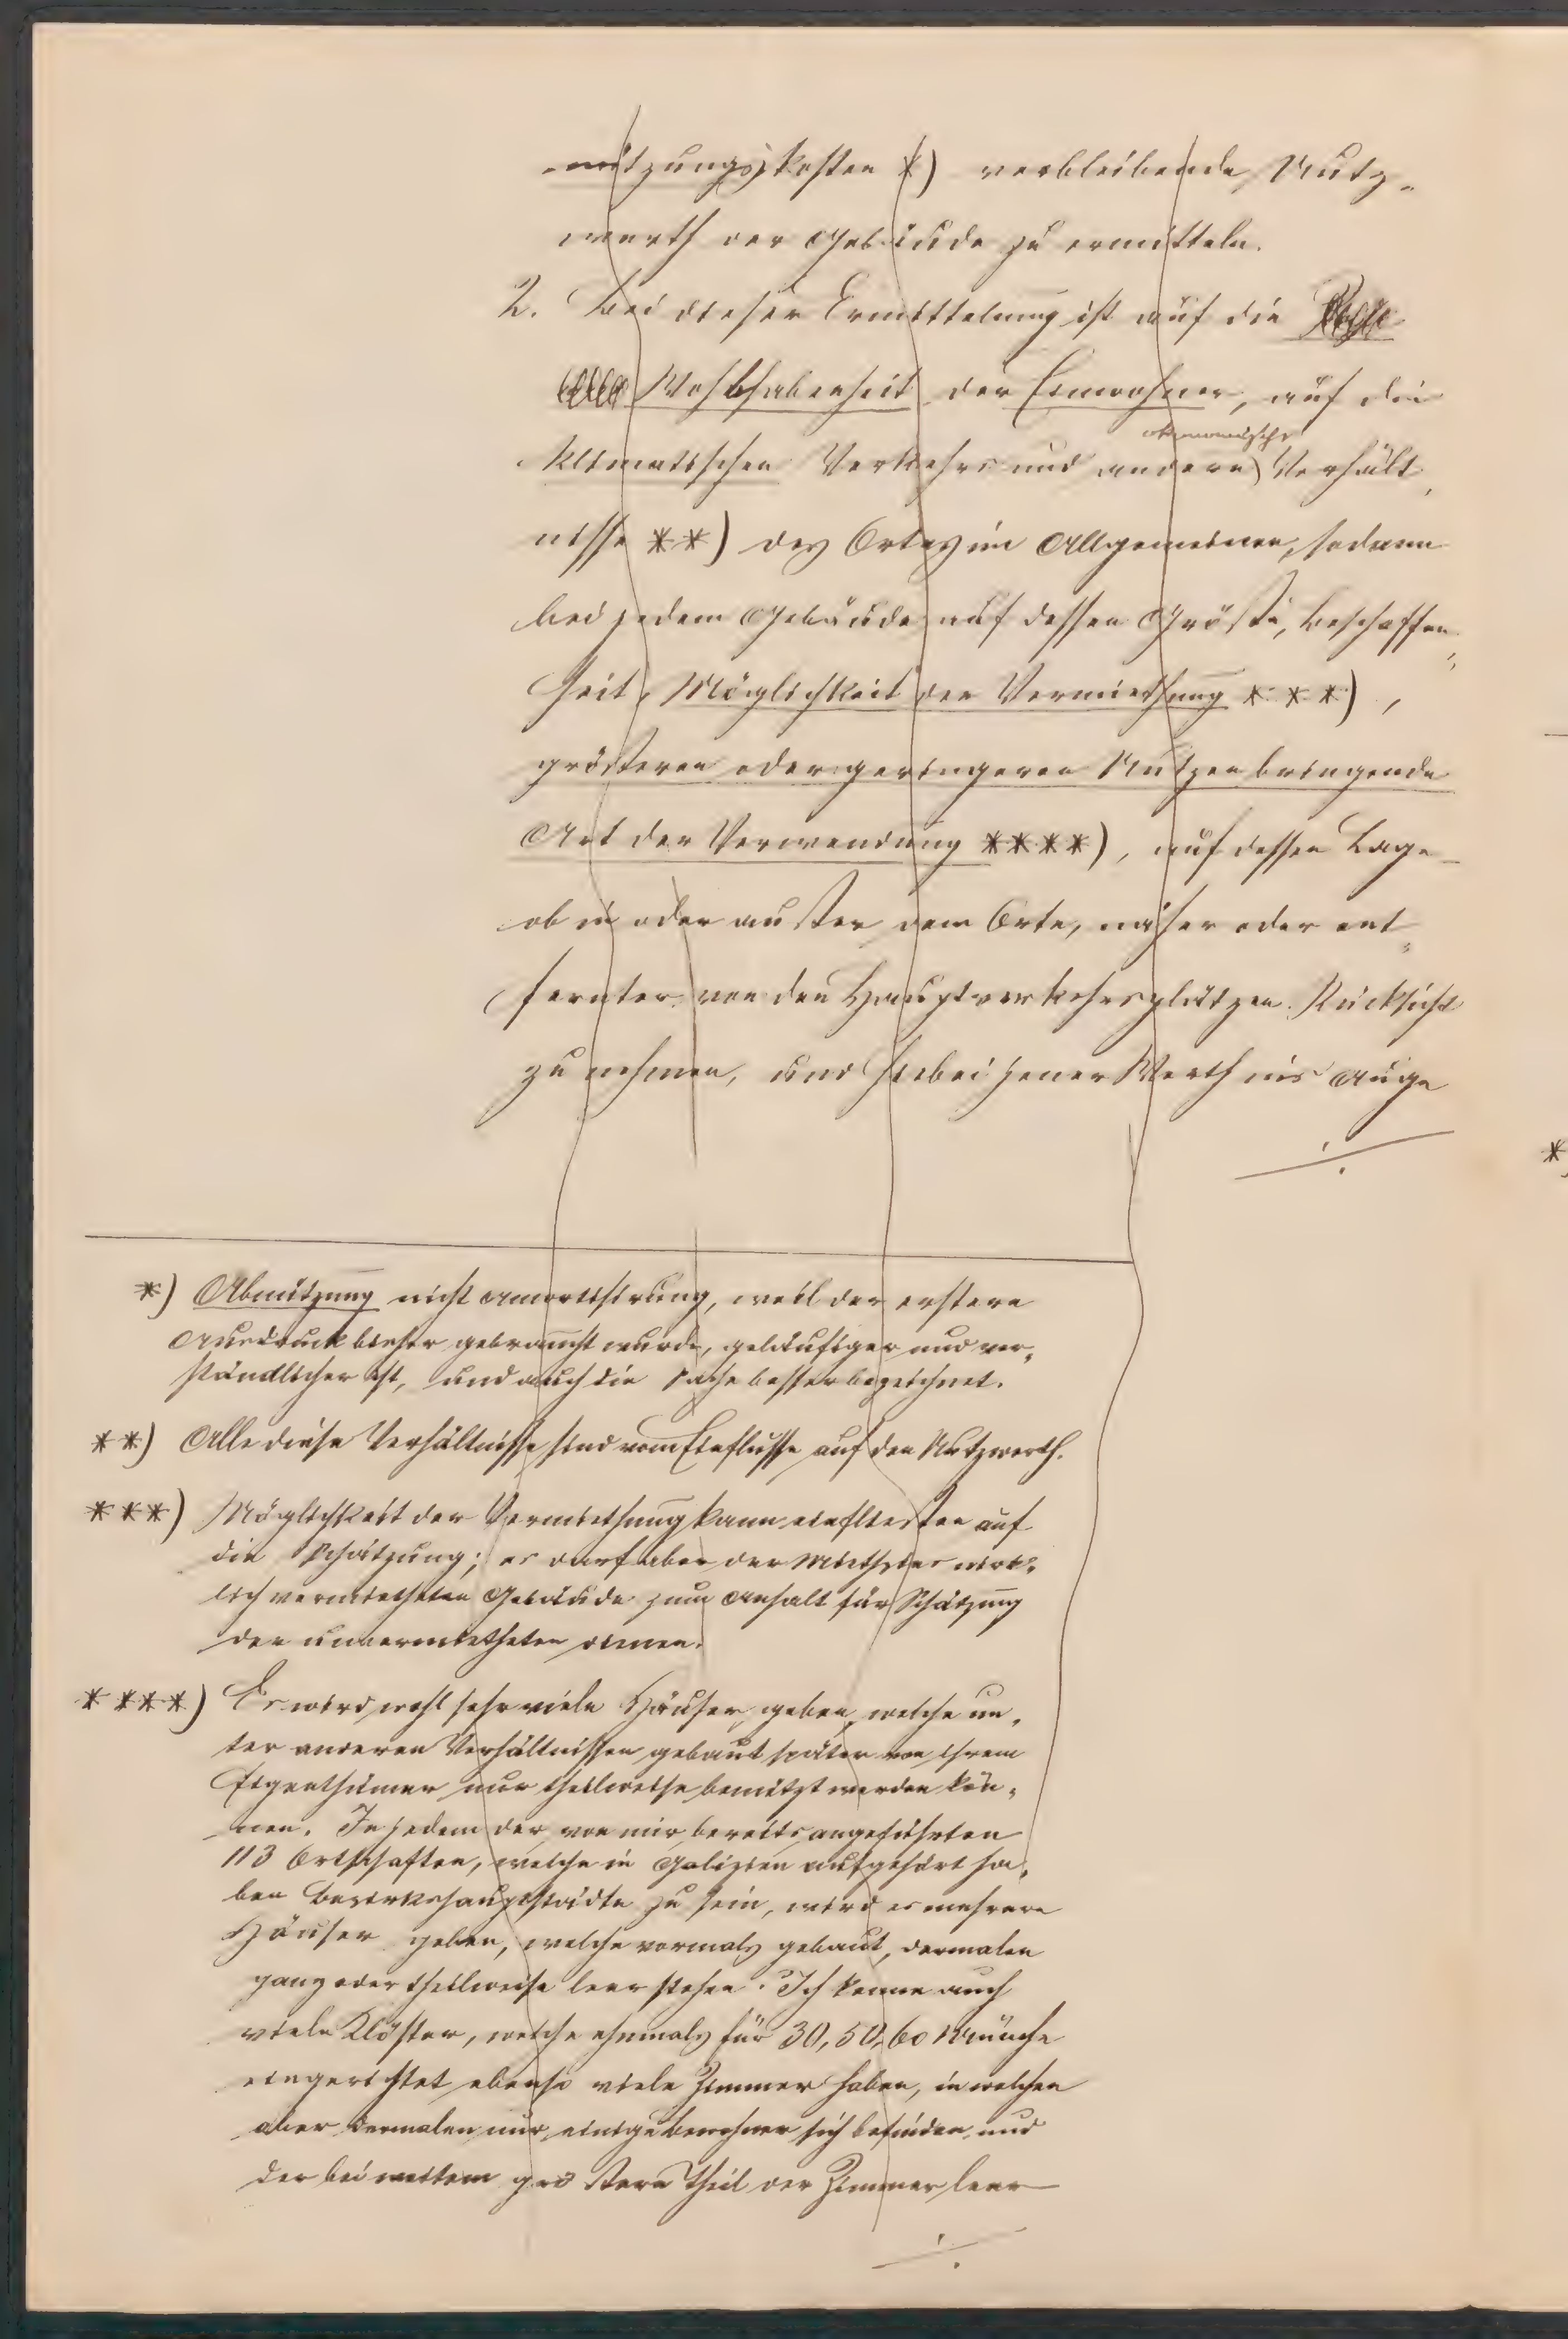 nützungskosten *) verbleibende Nutz-
werth der Gebäude zu ermitteln.
2. Bei dieser Ermittelung ist auf die
Wohlhabenheit der Einwohner, auf die
ökonomische
klimatischen Verkehrs und andere Verhält-
nisse **) des Ortes im Allgemeinen, sodann
bei jedem Gebäude auf dessen Größe, Beschaffen-
heit, Möglichkeit der Vermiethung ***),
größeren oder geringeren Nutzen bringende
Art der Verwendung ****), auf dessen Lage
ob in oder außer dem Orte, näher oder ent-
fernter von den Hauptverkehrsplätzen Rücksicht
zu nehmen, und hiebei jener Werth ins Auge
./.
*) Abnützung nicht Amortisirung, weil der erstere
Ausdruck bisher gebraucht wurde, geläufiger und ver-
ständlicher ist, und auch die Sache besser bezeichnet.
**) Alle diese Verhältnisse sind vom Einflusse auf den Nutzwerth.
***) Möglichkeit der Vermiethung kann einfließen auf
die Schätzung; es darf aber der Miethzins wirk-
lich vermietheten Gebäude zum Anhalt für Schätzung
der unvermietheten dienen.
****) Es wird wohl sehr viele Häuser geben, welche un-
ter anderen Verhältnissen gebaut später von ihrem
Eigenthümer nur theilweise benützt werden kön-
nen. In jedem der von mir bereits angeführten
113 Ortschaften, welche in Galizien aufgehört ha-
ben Bezirkshauptstädte zu sein, wird es mehrere
Häuser geben, welche vormals gebaut, dermalen
ganz oder theilweise leer stehen. Ich kenne auch
viele Klöster, welche ehemals für 30, 50, 60 Mönche
eingerichtet ebenso viele Zimmer haben, in welchen
aber dermalen nur einige Bewohner sich befinden und
der bei weitem größere Theil der Zimmer leer
./.